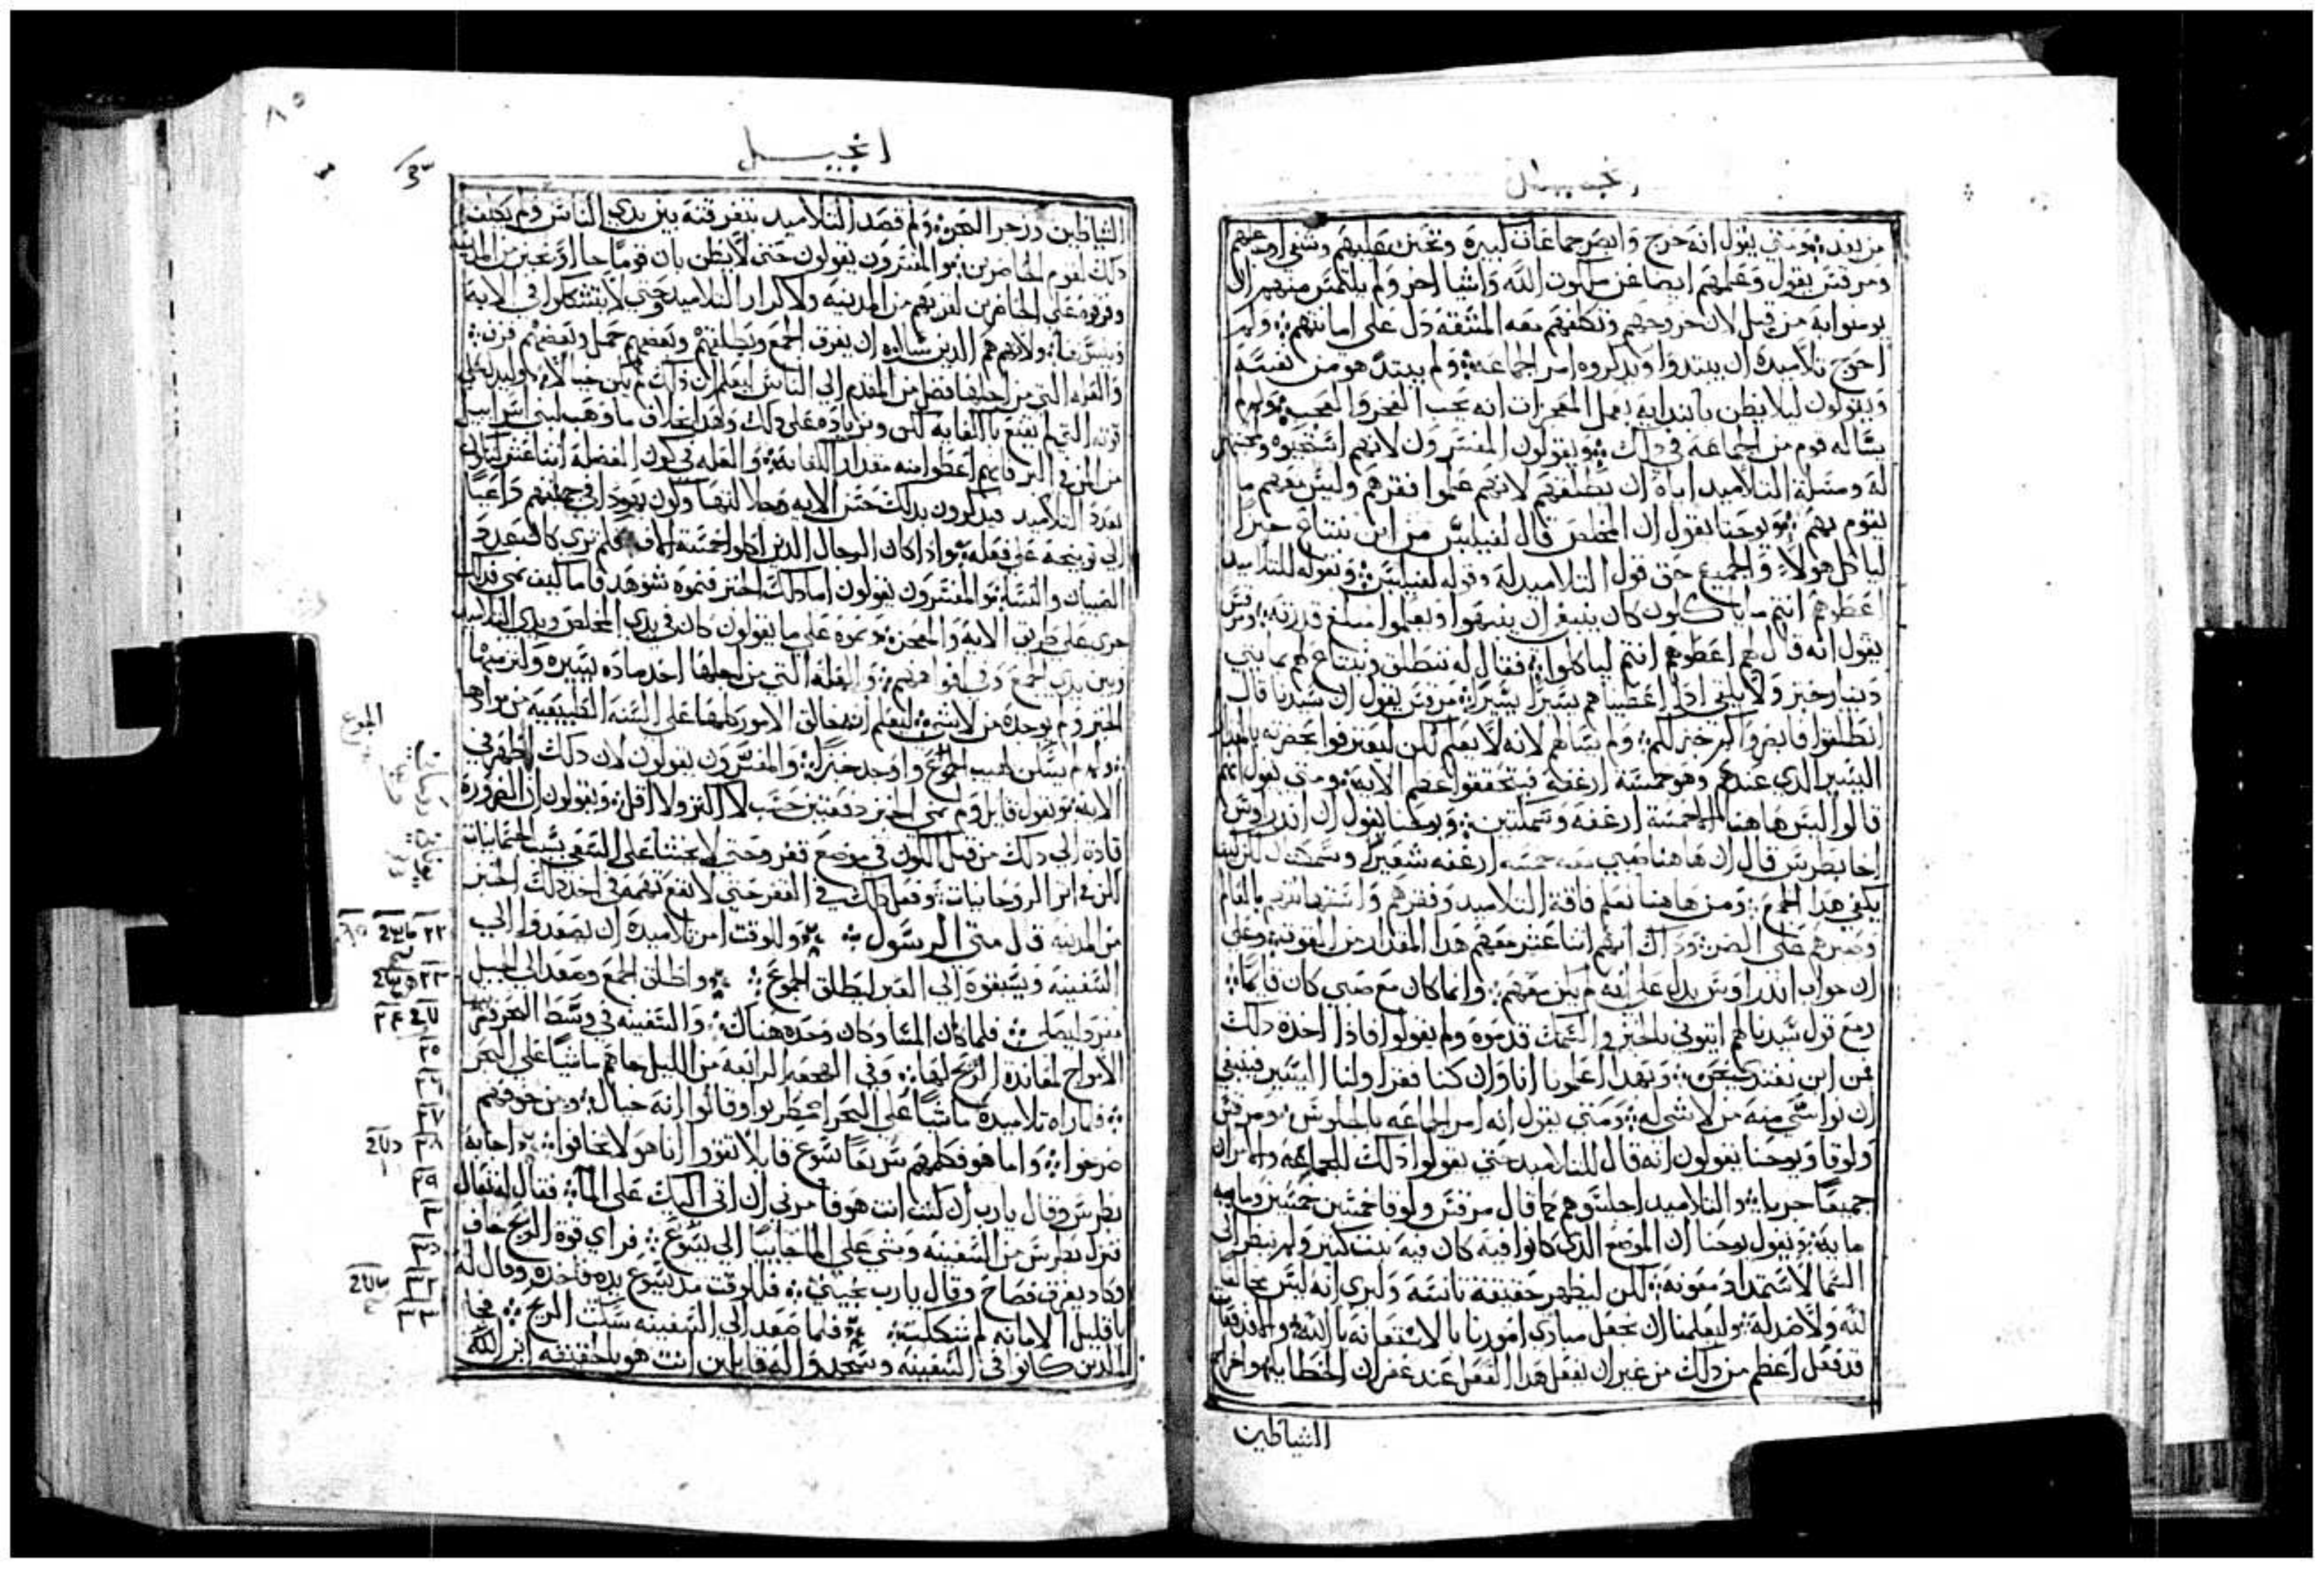 انجيل
من بعد ومتي يقول انه خرج وابصر جماعات كبيره وتحنن عليهم وشفي اوجاعهم
ومرقس يقول وعلمهم ايضا عن ملكوت الله واشيا اخر ولم يلتمس منهم ان
يومنوا به من قبل لان خروجهم وتكلفهم معه المشقه دل على امانتهم
احوج تلاميذه ان يبتدوا ويذكروه امر الجماعه ولم يبتدئ هو من نفسه
ويقولون ليلا يظن بابتدايه بعمل المعجزات انه يحب الفخر والعجب ولم
يساله قوم من الجماعه في ذلك ويقولون المفسرون لانهم استحيوه
له ومسلة التلاميد اياه ان يطلقهم لانهم علموا فقرهم وليس معهم ما
يقوم بهم ويوحنا يقول ان المخلص قال لفيلبس من اين نبتاع خبزا
لياكل هولاء والجميع حق قول التلاميد له وقوله لفيلبس وبقوله للتلاميد
اعطوهم انتم ما ياكلون كان ينبغي ان ينتبهوا ويعلموا مبلغ قدرته
يقول انه قال لهم اعطوهم انتم لياكلوا فقال له ننطلق ونبتاع لهم بمايتي
دينار خبز ولا يكفي اذا اعطيناهم يسيرا يسيرا مرقس يقول ان سيدنا قال
انطلقوا فابصروا كم خبز لكم ولم يسالهم لانه لا يعلم لكن ليعترفوا بحضرته
اليسير الذي عندهم وهو خمسة ارغفة فيتحققوا عظم الايه ومتي يقول انهم
قالوا ليس هاهنا الا خمسة ارغفه وسمكتين ويوحنا يقول ان اندراوس
اخا بطرس قال ان هاهنا صبي معه خمسه ارغفه شعير وسمكتان لكن ليسا
يكفي هذا الجمع ومن هاهنا نعلم فاقة التلاميد وفقرهم واستهانتهم بالعالم
وصبرهم على الضر وذاك انهم اثنا عشر معهم هذا المقدار من القوت وعلى
ان جواب اندراوس يدل على انه لم يكن معهم وانما كان مع صبي كان قايما
ومع قول سيدنا لهم ايتوني بالخبز والسمك قدموه ولم يقولوا فاذا اخذه ذلك
فمن اين نفتدي نحن وبهذا اعلمونا انا وان كنا فقرا ولنا اليسير فينبغي
ان نواسي منه من لا شي له ومتي يقول انه امر الجماعه بالجلوس ومرقس
ولوقا ويوحنا يقولون انه قال للتلاميد حتي يقولوا ذلك للجماعه والامران
جميعا جريا والتلاميد اجلسوهم كما قال مرقس ولوقا خمسين خمسين ومايه
مايه ويقول يوحنا ان الموضع الذي كانوا فيه كان فيه نبت كثير ولم ينظر الي
السما لاستمداد معونه لكن ليظهر حقيقة تانسه وليري انه ليس بخالف
لله ولا ضد له وليعلمنا ان نجعل مبادي امورنا بالاستعانه بالله
قد فعل اعظم من ذلك من غير ان يفعل هذا الفعل عند غفران الخطايا واخراج
الشياطين
انجيل
الشياطين وزجر البحر ولم قصد التلاميد بتفرقته بين يدي الناس ولم يكلف
ذلك لقوم الحاضرين والمفسرون يقولون حتي لا يظن بان قوما جاوا بخبز من المدينه
وفرقوه على الحاضرين لقربهم من المدينه ولاكرار التلاميد وحتي لا يتشككوا في الايه
وينسوها ولانهم هم الذين سالوه ان يفرق الجمع ويطلقهم وبعضهم حمل وبعضهم فرق
والعله التي من اجلها فضل من المقدم الي الناس ليعلم ان ذلك لم يكن خيالا وليدل على
قوته التي لم تقنع بالكفايه لكن وبزياده على ذلك وهذا بخلاف ما وهب لبني اسراييل
من المن في البر فانهم اعطوا منه مقدار الكفايه والعله في كون الفضلة اثنا عشر
بعدد التلاميد فيذكرون بذلك حسن الايه
الي توبيخه على فعله واذا كان الرجال الذين اكلوا خمسة الاف فكم تري كان عدد
الصبيان والنسا والمفسرون يقولون اما ذلك الخبز فنموه شوهد فاما كيف نمي فذلك
جري على طريق الايه والمعجزه ونموه على ما يقولون كان في يدي المخلص ويدي التلاميد
وبين يدي الجمع وفي افواههم والعله التي من اجلها اخذ مادة يسيره وكثر منها
الخبز ولم يوجده من لا شي ليعلم انه خالق الامور كلها على السنه الطبيعيه
ولم لم يسكن لهيب الجوع واوجد خبزا والمفسرون يقولون لان ذلك اظهر في
الايه ويقول قايل ولم نمي الخبز دفعتين حسب لا اكثر ولا اقل ويقولون ان الضروره
قادة الي ذلك من قبل الكون في موضع قفر وحتي لا يحثنا على السعي بسبب الجسمانيات
لكن في اثر الروحانيات وفعل ذلك في القفر حتي لا تقع تهمه في اخذ ذلك الخبز
من المدينه قال متي الرسول وللوقت امر تلاميده ان يصعدوا الي
السفينه ويسبقوه الي العبر ليطلق الجموع واطلق الجمع وصعد الي الجبل
منفردا ليصلي فلما كان المسا وكان وحده هناك والسفينه في وسط البحر تضربها
الامواج لمعاندة الريح لها وفي الهجعه الرابعه من الليل جاهم ماشيا على البحر
فلما راه تلاميده ماشيا على البحر اضطربوا وقالوا انه خيال ومن خوفهم
صرخوا واما هو فكلمهم سريعا يسوع قايلا تقووا انا هو لا تخافوا اجابه
بطرس وقال يا رب ان كنت انت هو فامرني ان اتي اليك على الما فقال له تعال
فنزل بطرس من السفينه ومشي على الما جاييا الي يسوع فراي قوة الريح خاف
وكاد يغرق فصاح وقال يا رب نجيني فللوقت مد يسوع يده فاخذه وقال له
يا قليل الامانه لم شككت فلما صعد الي السفينه سكنت الريح فجا
الذين كانوا في السفينه وسجدوا له قايلين انت هو بالحقيقه ابن الله
الجوع
٢٢
٢٣
٢٤